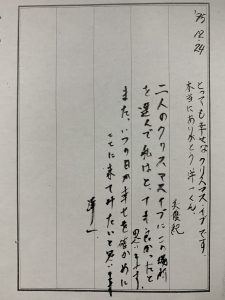 '95.12.24
とっても幸せなクリスマス・イブです。
本当にありがとう 洋一くん
二人のクリスマスイブにこの場所
を選んで私はとっても良かったと
思います。
また、いつの日か幸せを確かめに
ここに来てみたいと思います
洋一